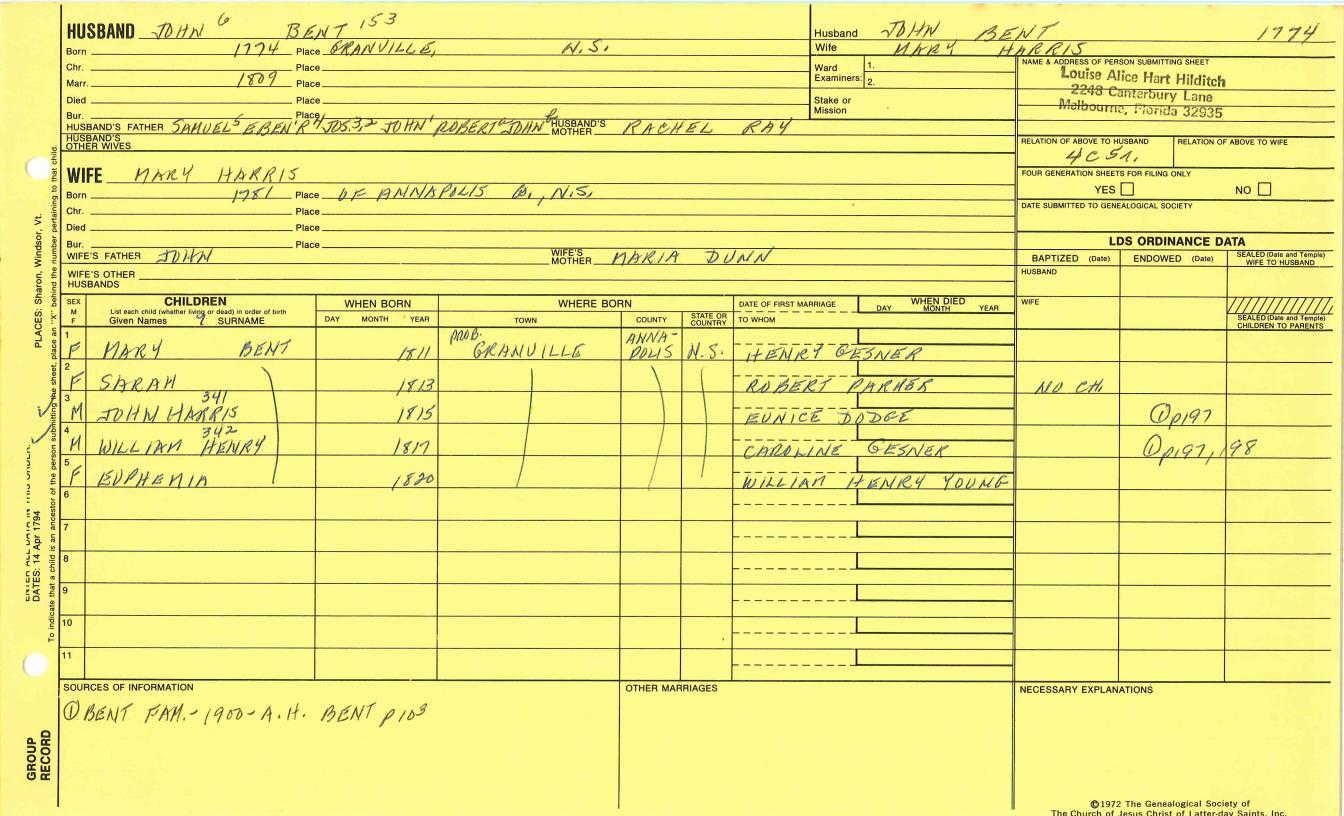 HUSBAND JOHN 6 BENT 153
Born 1774 Place GRANVILLE, N.S.
Chr. Place
Marr. 1809 Place
Died Place
Bur. Place
HUSBAND'S FATHER SAMUEL5 EBEN'R4 JOS.3,2 JOHN1 ROBERTa JOHNb HUSBAND'S MOTHER RACHEL RAY
HUSBAND'S OTHER WIVES
Husband JOHN BENT 1774
Wife MARY HARRIS
Ward Examiners: 1.
2.
Stake or Mission
NAME & ADDRESS OF PERSON SUBMITTING SHEET
Louise Alice Hart Hilditch
2248 Canterbury Lane
Melbourne, Florida 32935
RELATION OF ABOVE TO HUSBAND RELATION OF ABOVE TO WIFE
4C5r.
FOUR GENERATION SHEETS FOR FILING ONLY
YES NO
DATE SUBMITTED TO GENEALOGICAL SOCIETY
WIFE MARY HARRIS
Born 1781 Place OF ANNAPOLIS Co., N.S.
Chr. Place
Died Place
Bur. Place
WIFE'S FATHER JOHN WIFE'S MOTHER MARIA DUNN
WIFE'S OTHER HUSBANDS
LDS ORDINANCE DATA
BAPTIZED (Date) ENDOWED (Date) SEALED (Date and Temple) WIFE TO HUSBAND
HUSBAND
WIFE
SEALED (Date and Temple) CHILDREN TO PARENTS
SEX M F CHILDREN WHEN BORN WHERE BORN DATE OF FIRST MARRIAGE WHEN DIED
List each child (whether living or dead) in order of birth
Given Names SURNAME DAY MONTH YEAR TOWN COUNTY STATE OR COUNTRY TO WHOM DAY MONTH YEAR
1 F MARY BENT 1811 PROB. GRANVILLE ANNA-POLIS N.S. HENRY GESNER
2 F SARAH 1813 ROBERT PARKER NO CH.
3 M JOHN HARRIS 341 1815 EUNICE DODGE ①p197
4 M WILLIAM HENRY 342 1817 CAROLINE GESNER ①p197, 198
5 F EUPHEMIA 1820 WILLIAM HENRY YOUNG
6
7
8
9
10
11
SOURCES OF INFORMATION OTHER MARRIAGES NECESSARY EXPLANATIONS
① BENT FAM.- 1900- A.H. BENT p103
©1972 The Genealogical Society of
The Church of Jesus Christ of Latter-day Saints, Inc.
PLACES: Sharon, Windsor, Vt.
DATES: 14 Apr 1794
To indicate that a child is an ancestor of the person submitting the sheet, place an "X" behind the number pertaining to that child.
GROUP RECORD